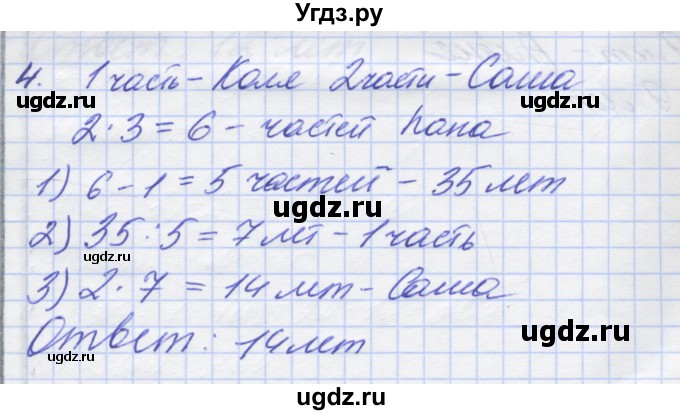 Угдз.ру
4. 1 часть - Коля 2 части - Саша
ugdz.ru
ugdz.ru
2 · 3 = 6 - частей папа
1) 6 - 1 = 5 частей - 35 лет
ugdz.ru
2) 35 : 5 = 7 лет - 1 часть
ugdz.ru
3) 2 · 7 = 14 лет - Саша
Ответ: 14 лет
ugdz.ru
ugdz.ru
ugdz.ru